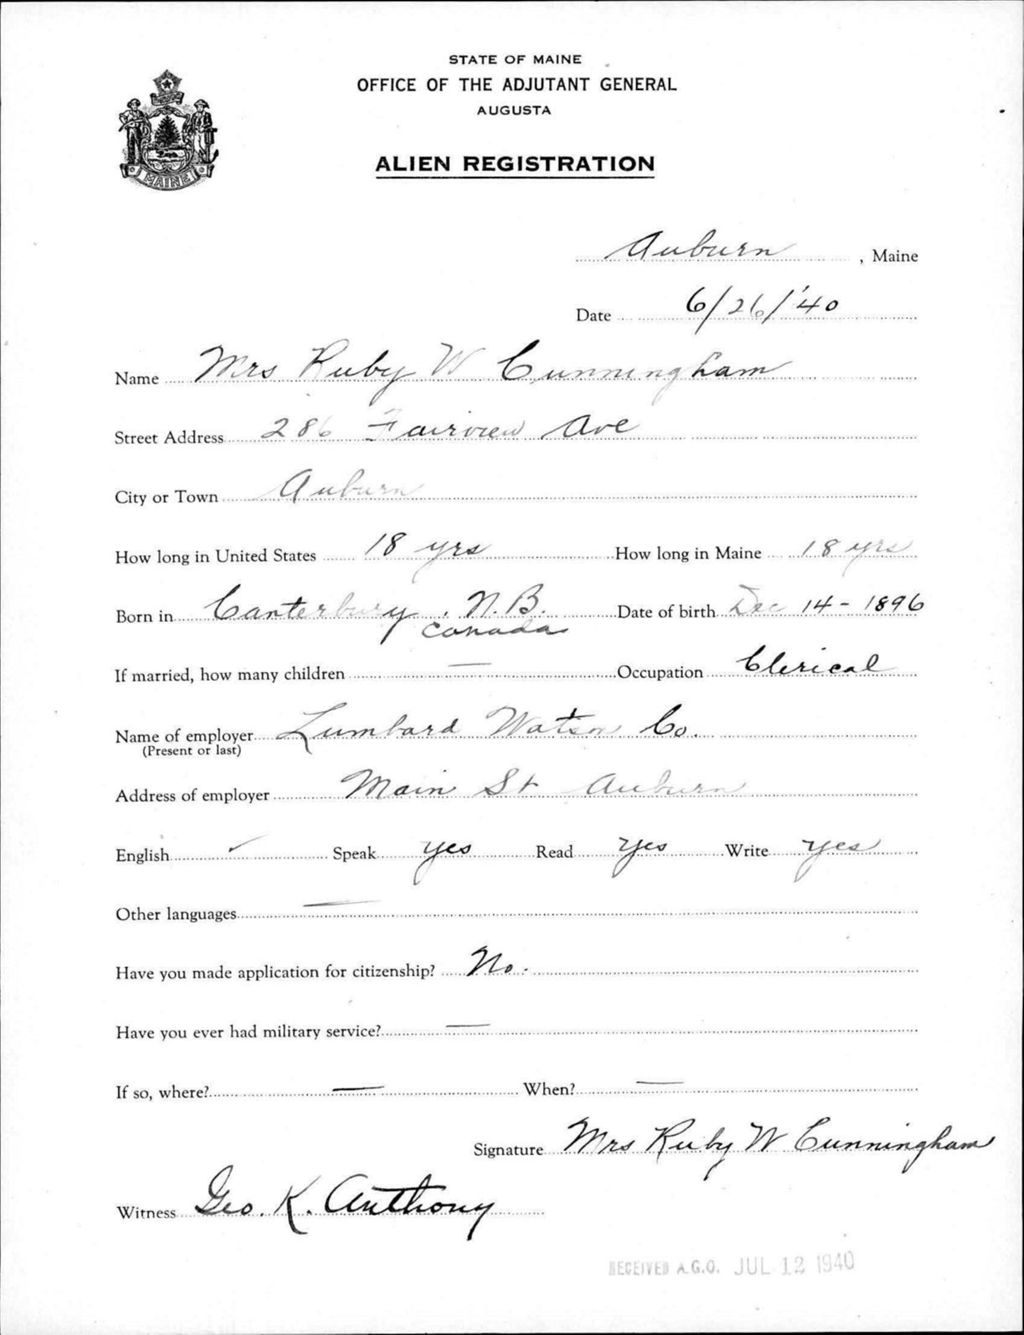 STATE OF MAINE
OFFICE OF THE ADJUTANT GENERAL
AUGUSTA
ALIEN REGISTRATION
MAINE
Auburn, Maine
Date 6/26/'40
Name Mrs Ruby W Cunningham
Street Address 286 Fairview Ave
City or Town Auburn
How long in United States 18 yrs How long in Maine 18 yrs
Born in Canterbury, N.B. Date of birth Dec 14-1896
Canada
If married, how many children — Occupation Clerical
Name of employer Lumbard Watson Co.
(Present or last)
Address of employer Main St Auburn
English ✓ Speak yes Read yes Write yes
Other languages —
Have you made application for citizenship? No.
Have you ever had military service? —
If so, where? — When? —
Signature Mrs Ruby W Cunningham
Witness Geo. K. Anthony
RECEIVED A.G.O. JUL 12 1940